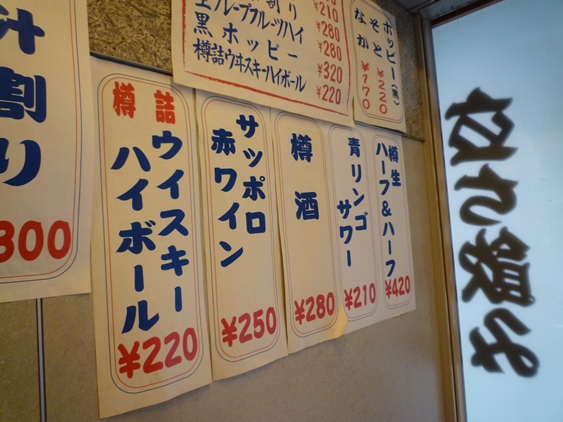 割り
¥210
生グレープフルーツハイ
¥280
黒ホッピー
¥280
樽詰ウヰスキーハイボール
¥320
¥220
ホッピー(黒)
そと ¥220
なか ¥170
割り
300
樽詰
ウイスキー
ハイボール
¥220
サッポロ
赤ワイン
¥250
樽酒
¥280
青リンゴ
サワー
¥210
樽生
ハーフ&ハーフ
¥420
立ち呑み